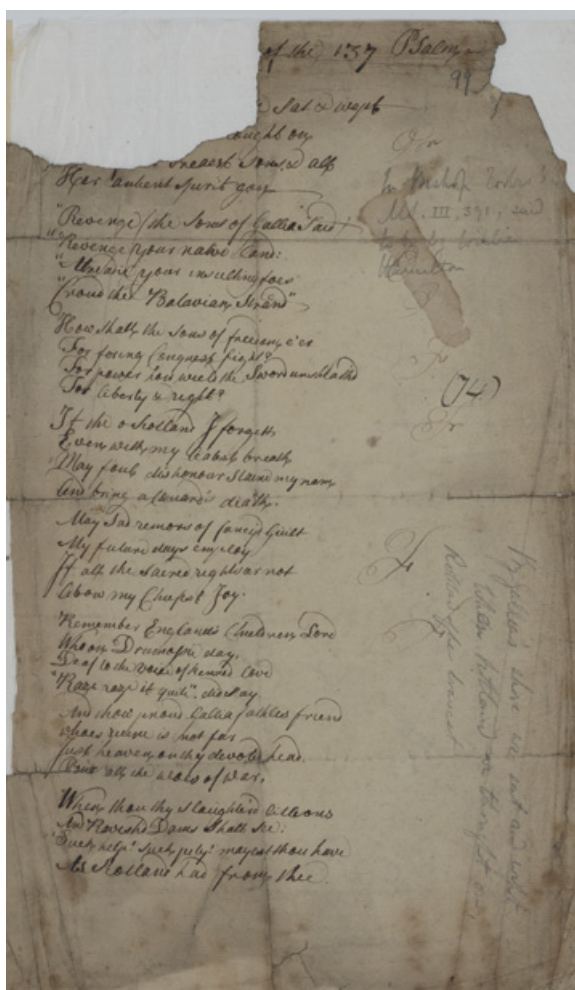 of the 137 Psalm
99
Sat & wept
ought on
Sons & all
Her antient spirit gon
"Revenge (the sons of Gallia said)
"Revenge your native land:
your insulting foes
"Croud the Batavian Strand"
How shall the sons of freedom e'er
For foring Conquest fight?
For power how wield the Sword
For liberty & right?
(74)
If the o Scotland I forgett
Even with my leatest breath
May foul dishonour Staind my nam
And bring a Cuard's death.
May Sad remors of fancy'd Guilt
My future days employ
If all the sacred rights ar not
Above my Chiefest Joy.
Remember England's Children, Lord
Who on Drumossie day,
Deaf to the voice of kindred love
"Raze raze it quite", did say.
And thow proud Gallia, faithles friend
whoes ruine is not far
Just heaven, on thy devoted head
Pour all the woes of war,
When thou thy Slaughter'd littleons
And Ravish'd Dams Shall See:
Such help! Such pity! mayest thou have
As Scotland had from thee.
In Bishop
Add. III. 391, said
to be by William
Hamilton
By Gallia's shore we sat and wept
When Scotland we thought on,
Robbed of her bravest